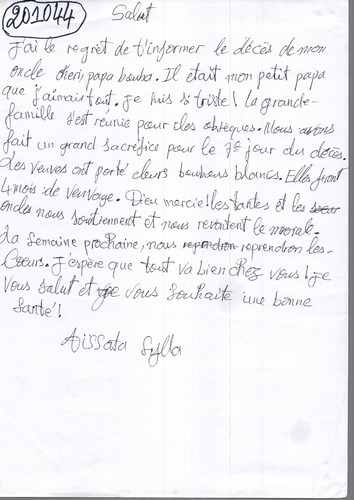 201044
Salut
J'ai le regret de t'informer le décès de mon
oncle cheri, papa bouba. Il était mon petit papa
que j'aimais tout. Je suis si triste! la grande-
famille s'est réunie pour les obsèques. Nous avons
fait un grand sacrefice pour le 7e jour du décès.
Les veuves ont porté leurs boubous blancs. Elles front
4 mois de veuvage. Dieu mercie! les tantes et les
oncles nous soutiennent et nous revontent le morale.
La semaine prochaine, nous reprendron les-
Coeurs. J'espère que tout va bien chez vous! Je
vous salut et vous souhaite une bonne
Santé!
Aissata Sylla